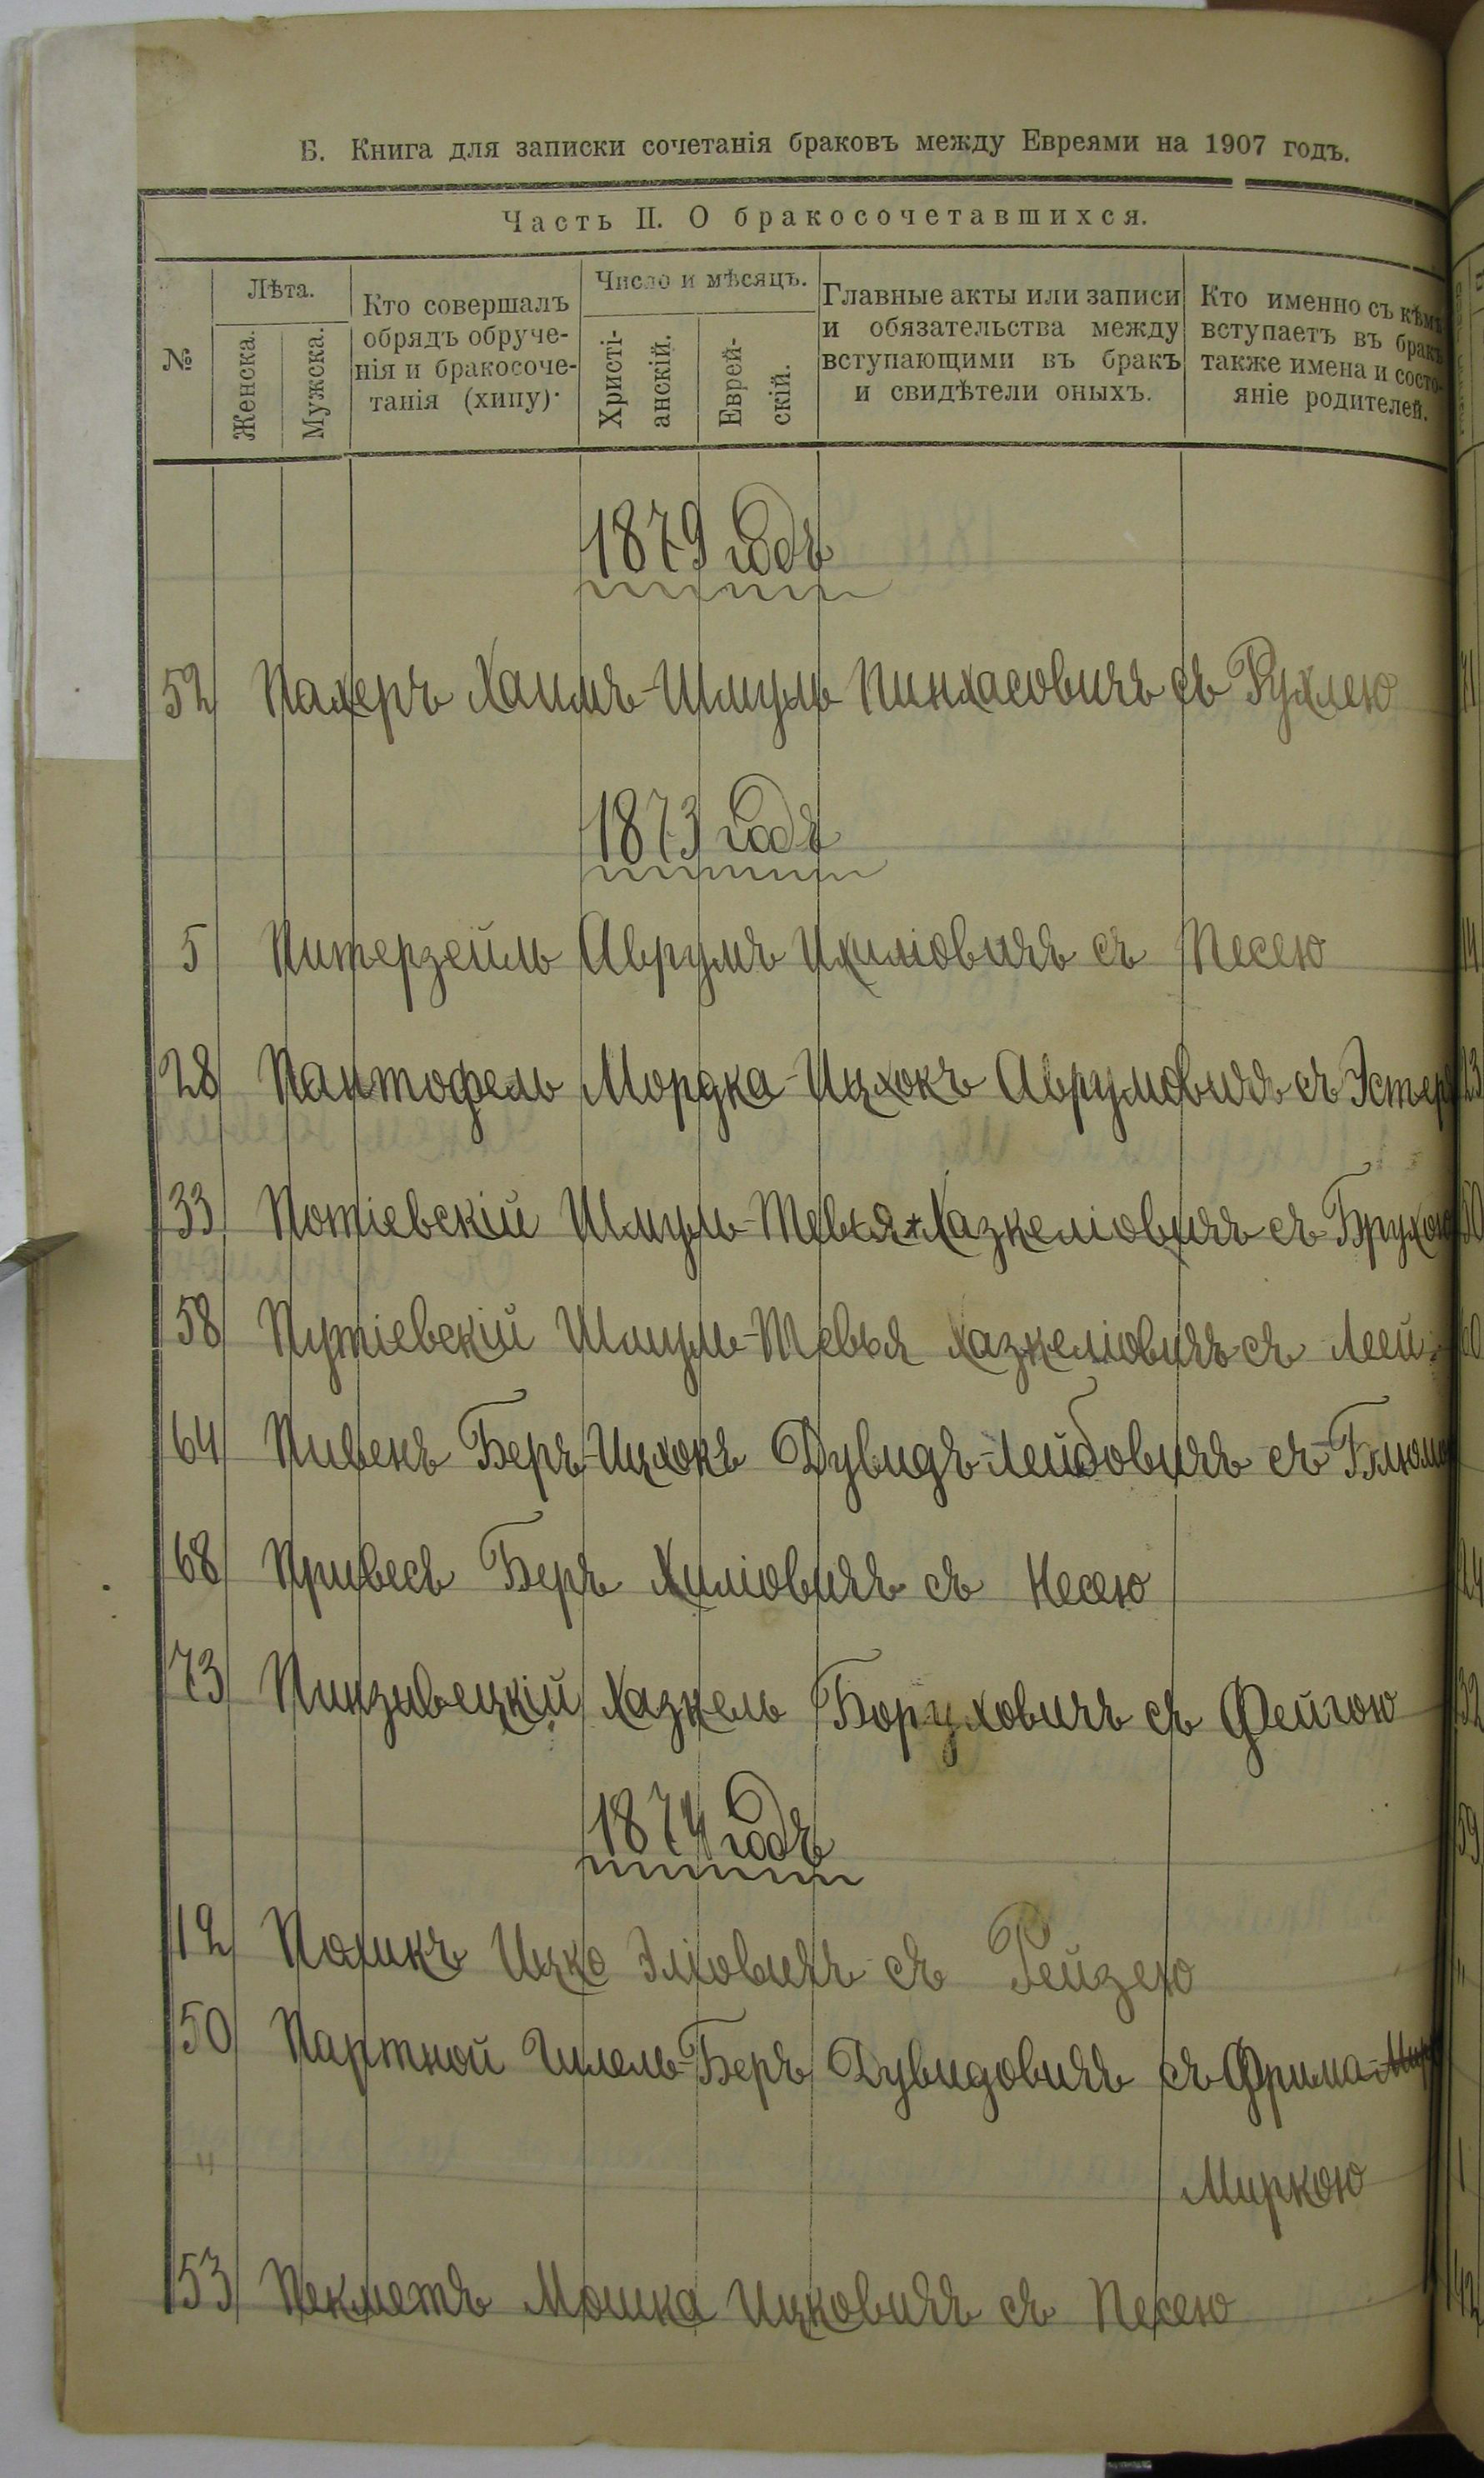 Б. Книга для записки сочетанія браковъ между Евреями на 1907 годъ.
Часть II. О бракосочетавшихся.
№
Лѣта.
Женска.
Мужска.
Кто совершалъ
обрядъ обруче-
нія и бракосоче-
танія (хипу).
Число и мѣсяцъ.
Христі-
анскій.
Еврей-
скій.
Главные акты или записи
и обязательства между
вступающими въ бракъ
и свидѣтели оныхъ.
Кто именно съ кѣмъ
вступаетъ въ бракъ
также имена и состо-
яніе родителей.
1879 годъ
52 Пахеръ Хаимъ-Шмуль Пинхасовичъ съ Рухлею
1873 годъ
5 Питерзейль Аврумъ Ихиліовичъ съ Песею
28 Пантофель Мордка-Ицхокъ Аврумовичъ съ Эстер
33 Потіевскій Шмуль-Тевья Хазкеліовичъ съ Брухою
58 Путіевскій Шмуль-Тевья Хазкеліовичъ съ Леей
64 Пивенъ Беръ-Ицхокъ Дувидъ-Лейбовичъ съ Блюмо
68 Привесъ Беръ Хиліовичъ съ Несею
73 Пинзивецкій Хазкель Боруховичъ съ Фейгою
1874 годъ
12 Поликъ Ицко Эліовичъ съ Рейзею
50 Партной Гилель-Беръ Дувидовичъ съ Фрима-Мир
" Миркою
53 Пекметъ Мошка Ицковичъ съ Песею